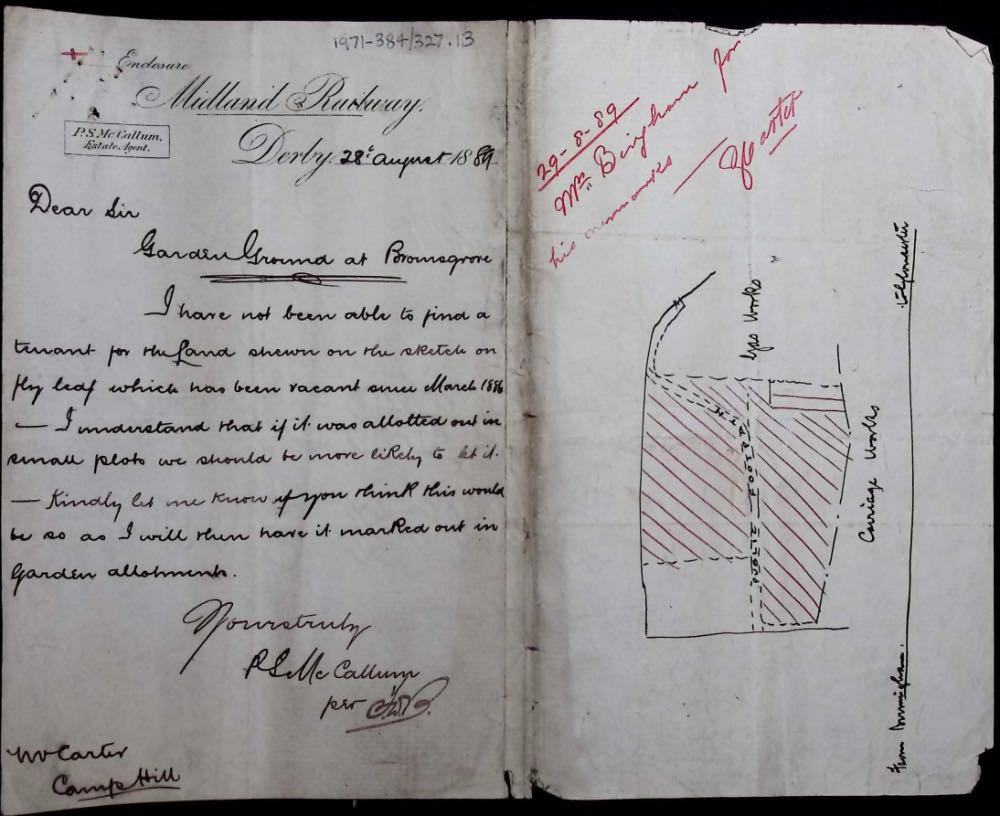 1971-384/327.13
Enclosure
Midland Railway.
P.S. Mc Callum.
Estate Agent.
Derby, 28th August 1889
Dear Sir
Garden Ground at Bromsgrove
I have not been able to find a
tenant for the Land shewn on the sketch on
fly leaf which has been vacant since March 1886
— I understand that if it was allotted out in
small plots we should be more likely to let it.
— Kindly let me know if you think this would
be so as I will then have it marked out in
Garden allotments.
Yours truly
P.S. Mc Callum
per
Mr Carter
Camp Hill
29-8-89
Mr Bingham for
his remarks —
Gas Works
PUBLIC FOOTPATH
Carriage Works
To Gloucester
From Birmingham.